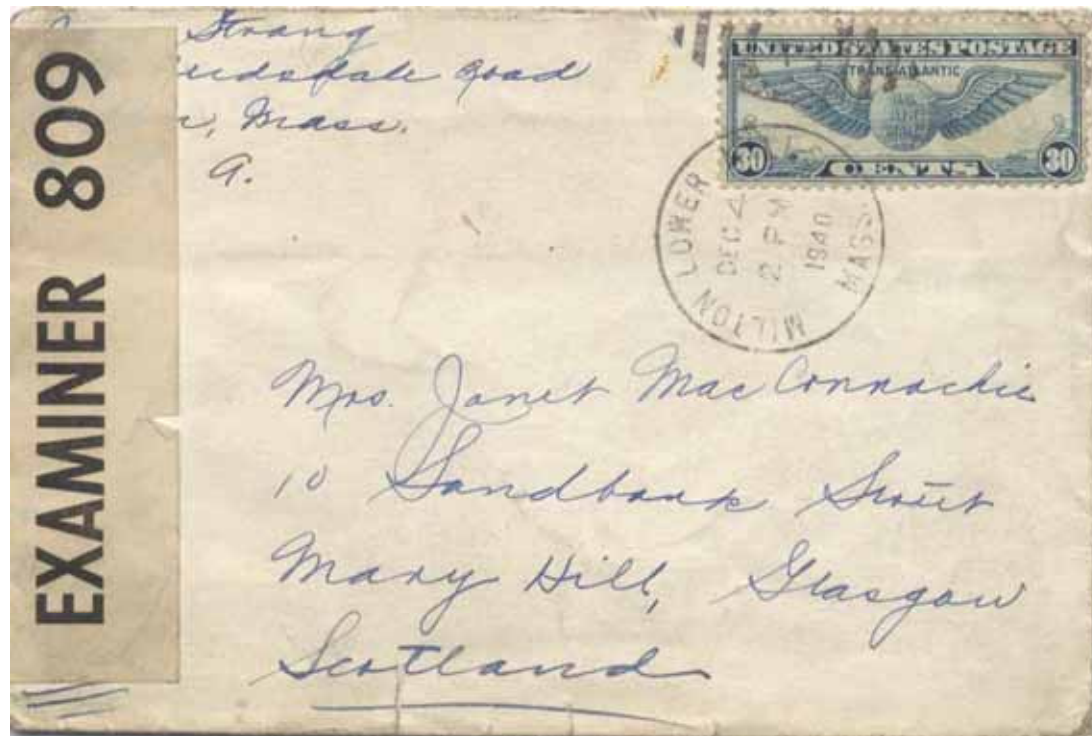 Strang
Road
Mass.
A.
EXAMINER 809
UNITED STATES POSTAGE
TRANSATLANTIC
30 CENTS 30
MILTON LOWER MASS.
DEC 4
2 PM
1940
Mrs. Janet MacConnachie
10 Sandbank Street
Mary Hill, Glasgow
Scotland